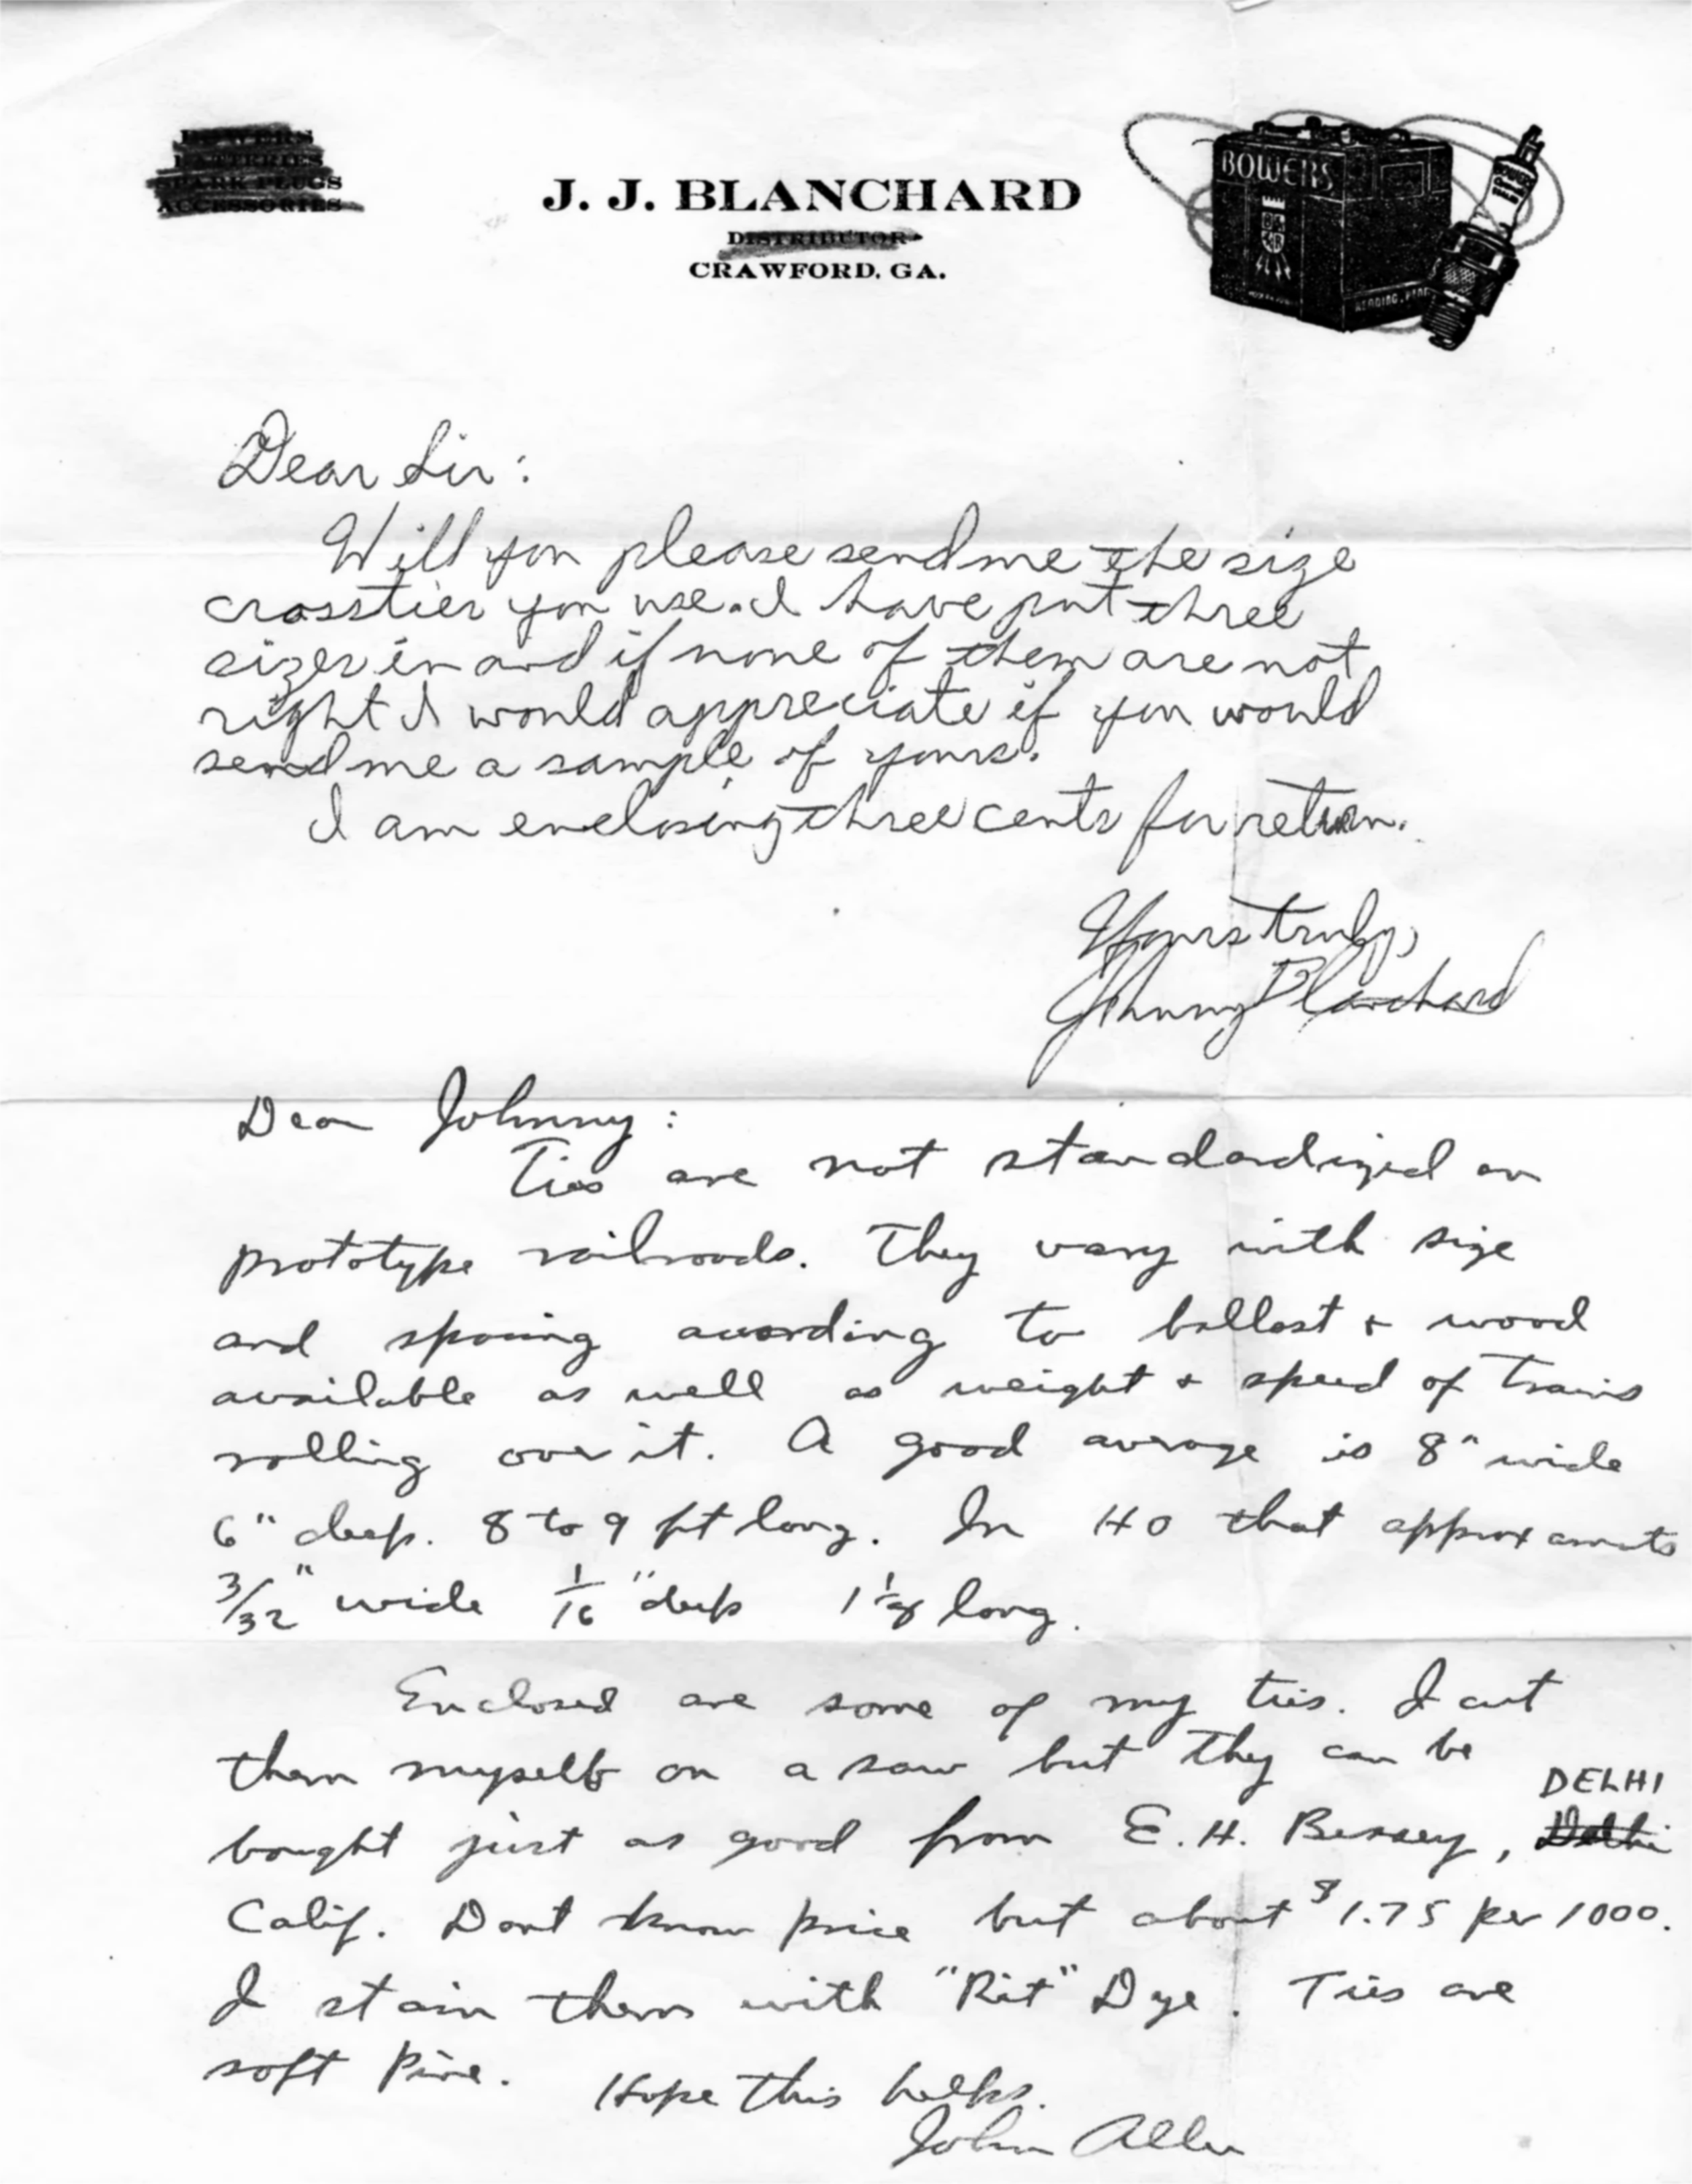 BOWERS
BATTERIES
SPARK PLUGS
ACCESSORIES
J. J. BLANCHARD
DISTRIBUTOR
CRAWFORD, GA.
BOWERS
READING, PENN
Dear Sir:
Will you please send me the size
crossties you use. I have put three
sizes in and if none of them are not
right I would appreciate if you would
send me a sample of yours.
I am enclosing three cents for return.
Yours truly,
Johnny Blanchard
Dear Johnny:
Ties are not standardized on
prototype railroads. They vary with size
and spacing according to ballast + wood
available as well as weight + speed of trains
rolling over it. A good average is 8" wide
6" deep. 8 to 9 ft long. In HO that approxamats
3/32" wide 1/16" deep 1 1/8 long.
Enclosed are some of my ties. I cut
them myself on a saw but they can be
bought just as good from E.H. Bessey, Delhi DELHI
Calif. Dont know price but about $1.75 per 1000.
I stain them with "Rit" Dye. Ties are
soft Pine. Hope this helps.
John Allen